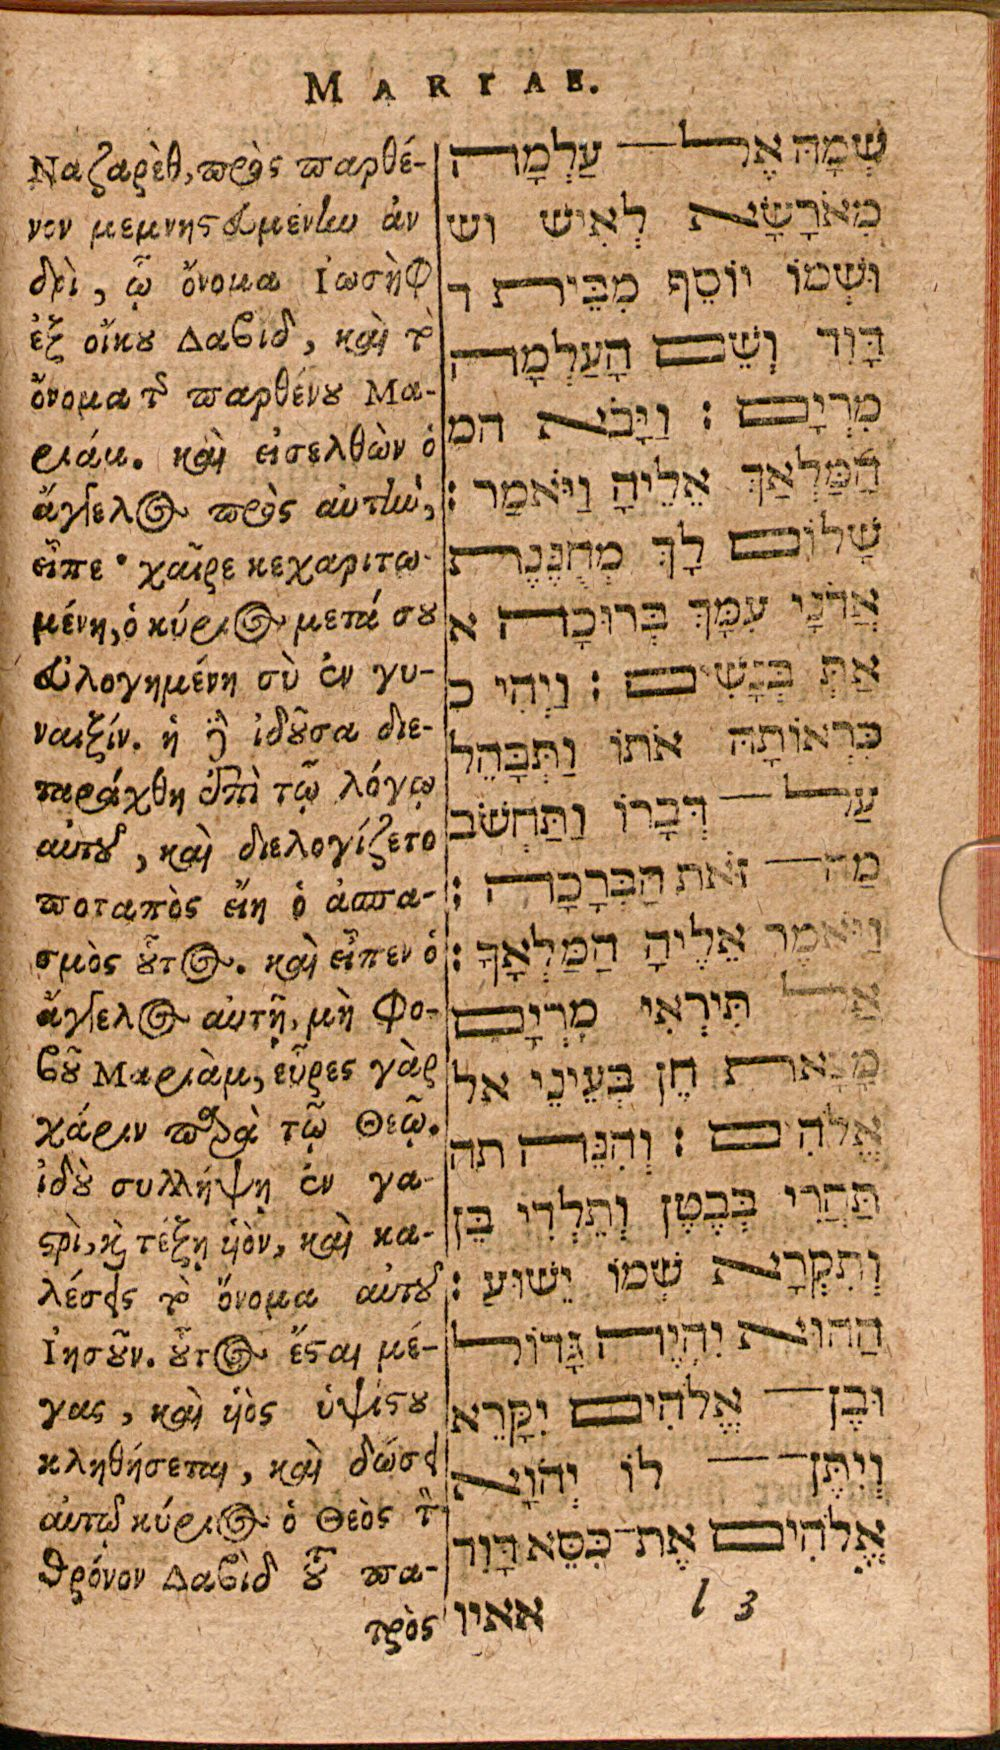 MARIAE.
Ναζαρὲθ, πρὸς παρθέ-
νον μεμνηστευμένην ἀν
δρὶ, ᾧ ὄνομα Ἰωσὴφ
ἐξ οἴκου Δαβιδ, καὶ τὸ
ὄνομα τῆς παρθένου Μα-
ριάμ. καὶ εἰσελθὼν ὁ
ἄγγελος πρὸς αὐτὴν,
εἶπε· χαῖρε κεχαριτω-
μένη, ὁ κύριος μετά σου
εὐλογημένη σὺ ἐν γυ-
ναιξίν. ἡ δὲ ἰδοῦσα διε-
ταράχθη ἐπὶ τῷ λόγῳ
αὐτοῦ, καὶ διελογίζετο
ποταπὸς εἴη ὁ ἀσπα-
σμὸς οὗτος. καὶ εἶπεν ὁ
ἄγγελος αὐτῇ, μὴ φο-
βοῦ Μαριὰμ, εὗρες γὰρ
χάριν παρὰ τῷ Θεῷ.
ἰδοὺ συλλήψῃ ἐν γα-
στρὶ, καὶ τέξῃ υἱὸν, καὶ κα-
λέσεις τὸ ὄνομα αὐτοῦ
Ἰησοῦν. οὗτος ἔσται μέ-
γας, καὶ υἱὸς ὑψίστου
κληθήσεται, καὶ δώσει
αὐτῷ κύριος ὁ Θεὸς τὸν
θρόνον Δαβὶδ τοῦ πα-
τρὸς
שְׁמָהּ אֶל־ עַלְמָה
מְאֹרָשָׂא לְאִישׁ וש
וּשְׁמוֹ יוֹסֵף מִבֵּית ד
דָּוִד וְשֵׁם הָעַלְמָה
מִרְיָם : וַיָּבֹא המ
הַמַּלְאַךְ אֵלֶיהָ וַיֹּאמַר :
שָׁלוֹם לָךְ מְחֻנֶּנֶת
אֲדֹנָי עִמָּךְ בְּרוּכָה א
אַתְּ בְּנָשִׁים : וַיְהִי כ
כִּרְאוֹתָהּ אֹתוֹ וַתְּבָּהֵל
עַל־ דְּבָרוֹ וַתַּחְשֹׁב
מַה־ זֹּאת הַבְּרָכָה :
וַיֹּאמֶר אֵלֶיהָ הַמַּלְאָךְ :
אַל תִּירְאִי מִרְיָם
מָצָאת חֵן בְּעֵינֵי אל
אֱלֹהִים : וְהִנֵּה תה
תַּהֲרִי בְּבֶטֶן וְתֵלְדִי בֵּן
וְתִקְרָא שְׁמוֹ יֵשׁוּעַ :
הַהוּא יִהְיֶה גָּדוֹל
וּבֶן־ אֱלֹהִים יִקָּרֵא
וְיִתֶּן־ לוֹ יְהֹוָא
אֱלֹהִים אֶת־כִּסֵּא דָּוִד
אאיו
l 3